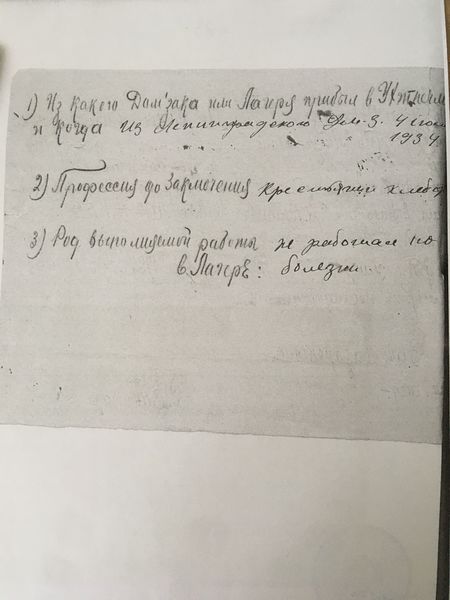 1) Из какого Дом'зака или Лагеря прибыл в
и когда из Ленинградского Дом-З. 4
1934
2) Профессия до Заключения крестьянин
3) Род выполняемой работы не работал по
в Лагере: болезни